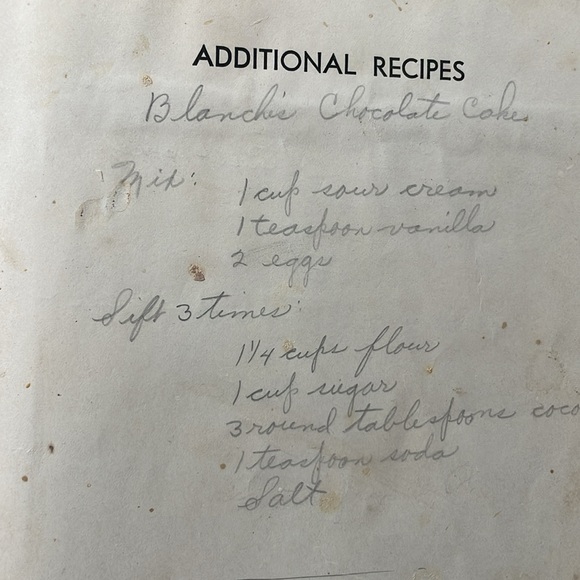 ADDITIONAL RECIPES
Blanch's Chocolate Cake
Mix:
1 cup sour cream
1 teaspoon vanilla
2 eggs
Sift 3 times:
1 1/4 cups flour
1 cup sugar
3 round tablespoons coco
1 teaspoon soda
Salt